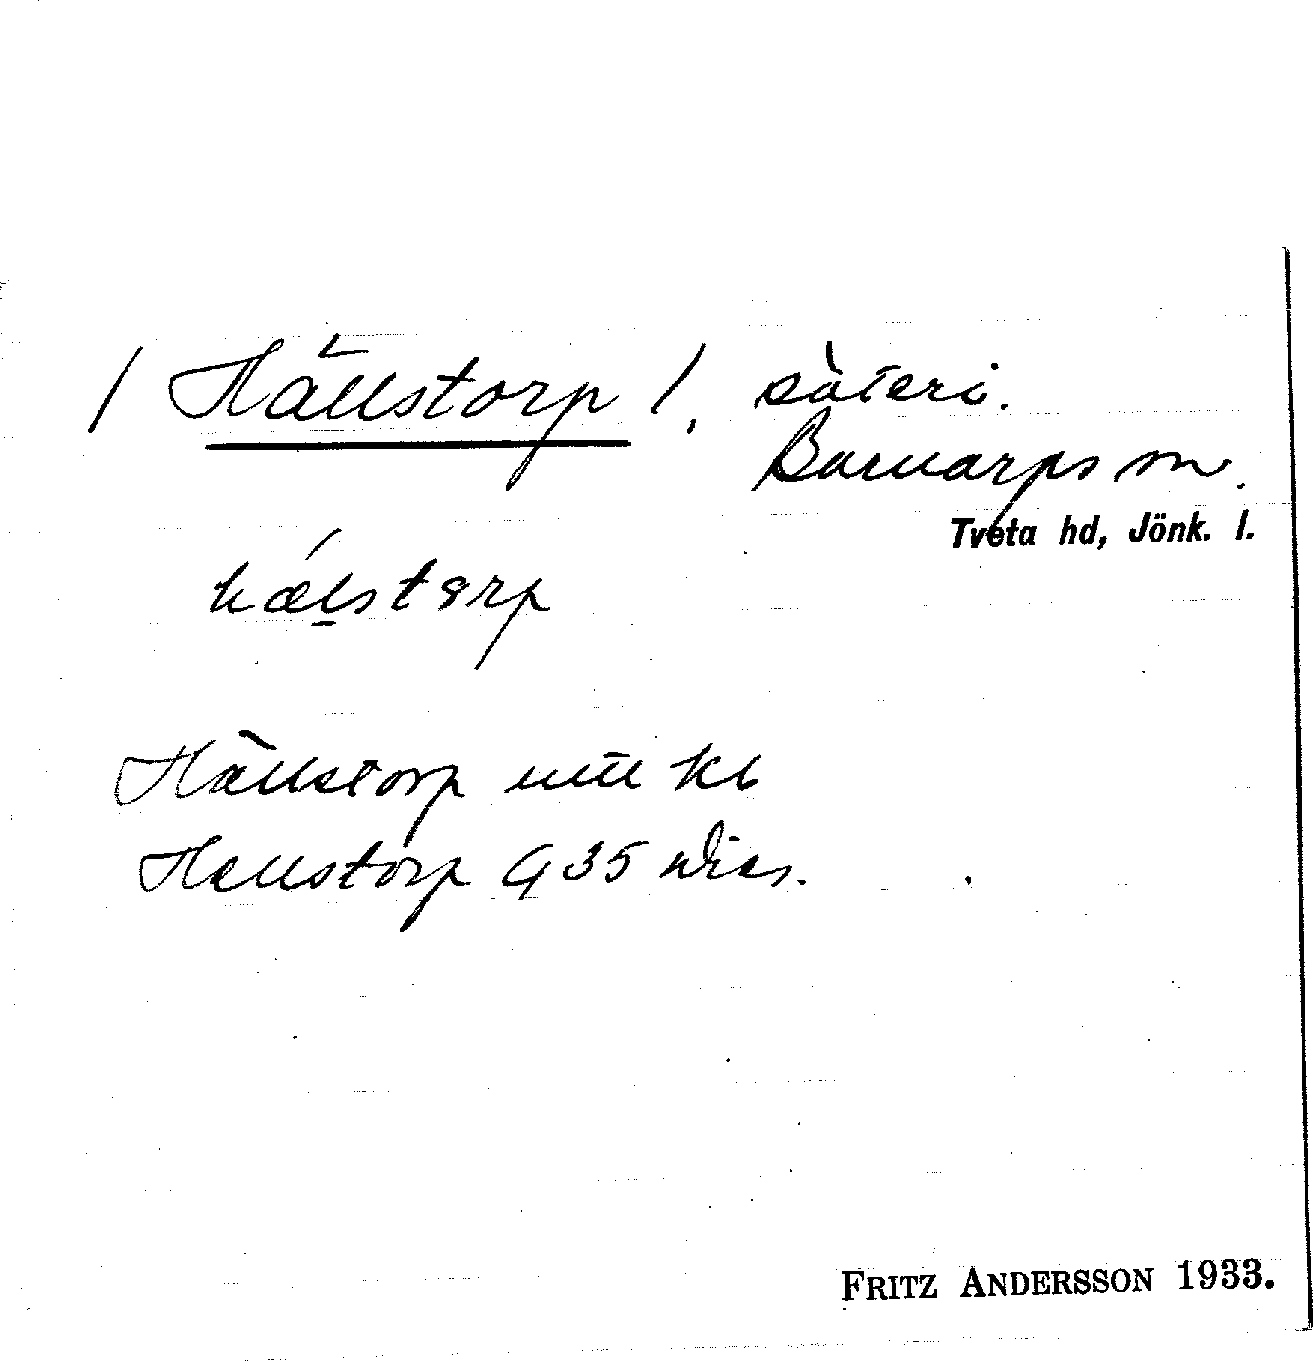 / Hällstorp /. säteri.
Barnarps sn.
Tveta hd, Jönk. l.
hælstorp
Hällstorp utt kb
Hallstorp G 35
FRITZ ANDERSSON 1933.